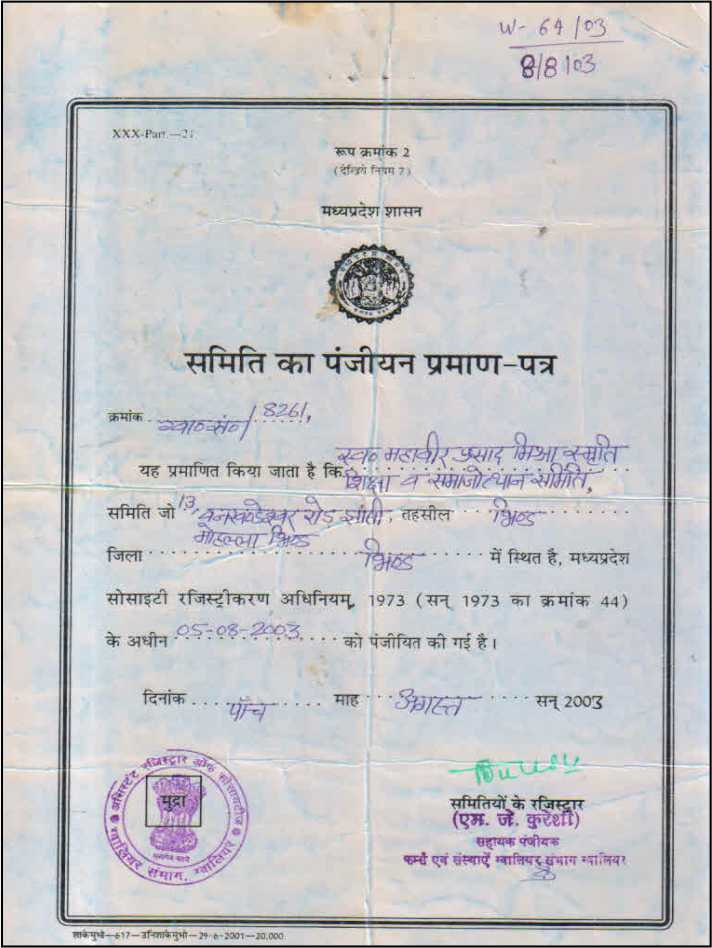 W- 64/03
8/8/03
XXX-Part.—21
रूप क्रमांक 2
(देखिये नियम 7)
मध्यप्रदेश शासन
समिति का पंजीयन प्रमाण-पत्र
क्रमांक ग्वा०सं०/8261,
स्व० महावीर प्रसाद मिश्रा स्मृति
यह प्रमाणित किया जाता है कि शिक्षा व समाजोत्थान समिति,
समिति जो 13, रोड तहसील भिण्ड
मोहल्ला भिण्ड
जिला भिण्ड में स्थित है, मध्यप्रदेश
सोसाइटी रजिस्ट्रीकरण अधिनियम, 1973 (सन् 1973 का क्रमांक 44)
के अधीन 05-08-2003 को पंजीयित की गई है।
दिनांक पाँच माह अगस्त सन् 2003
असिस्टेंट रजिस्ट्रार ऑफ सोसायटीज
मुद्रा
ग्वालियर संभाग, ग्वालियर
समितियों के रजिस्ट्रार
(एम. जे. कुरेशी)
सहायक पंजीयक
फर्म्स एवं संस्थाएँ ग्वालियर संभाग ग्वालियर
29-6-2001—20,000